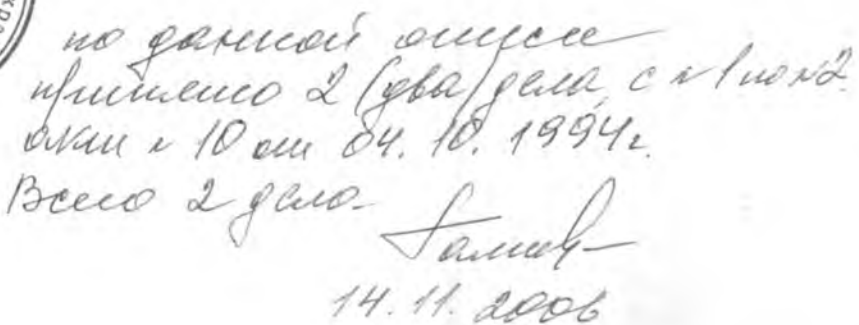 по данной описи
принято 2 (два) дела, с №1 по №2
акт № 10 от 04.10.1994г.
Всего 2 дела
14.11.2006